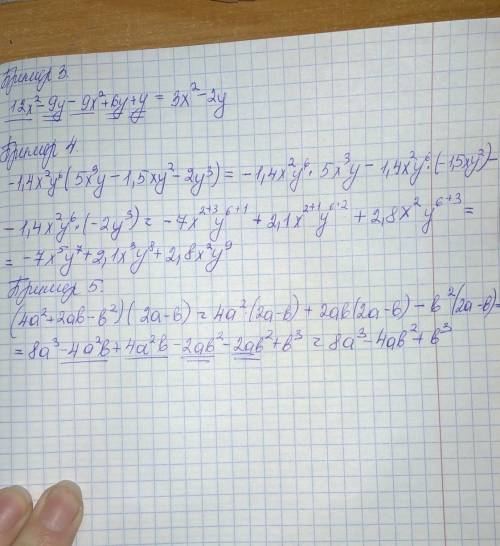 Пример 3.
12x²-9y-9x²+6y+y = 3x²-2y
Пример 4.
-1,4x²y⁶(5x³y-1,5xy²-2y³) = -1,4x²y⁶·5x³y-1,4x²y⁶·(-1,5xy²)-
-1,4x²y⁶·(-2y³) = -7x²⁺³y⁶⁺¹+2,1x²⁺¹y⁶⁺²+2,8x²y⁶⁺³=
= -7x⁵y⁷+2,1x³y⁸+2,8x²y⁹
Пример 5.
(4a²+2ab-b²)(2a-b) = 4a²·(2a-b)+2ab(2a-b)-b²(2a-b)=
= 8a³-4a²b+4a²b-2ab²-2ab²+b³ = 8a³-4ab²+b³